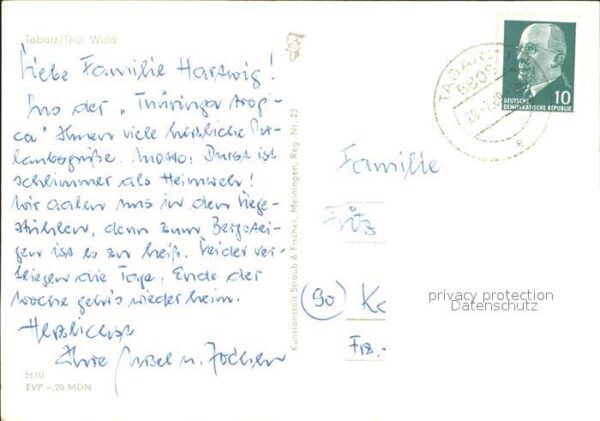 Tabarz/Thür Wald
Liebe Familie Hartwig!
Aus der „Thüringa tropi-
ca" Ihnen viele herzliche Ur-
laubsgrüße. Motto: Durst ist
schlimmer als Heimweh!
Wir aalen uns in den Liege-
stühlen, denn zum Bergstei-
gen ist es zu heiß. Leider ver-
fliegen die Tage. Ende der
Woche geht's wieder heim.
Herzlichst
Ihre u. Jochen
EVP –,20 MDN
Kunstanstalt Straub & Fischer, Meiningen, Reg.-Nr. 23
TABARZ
5809
e
10
DEUTSCHE
DEMOKRATISCHE REPUBLIK
Familie
Fritz
(90)
privacy protection
Datenschutz